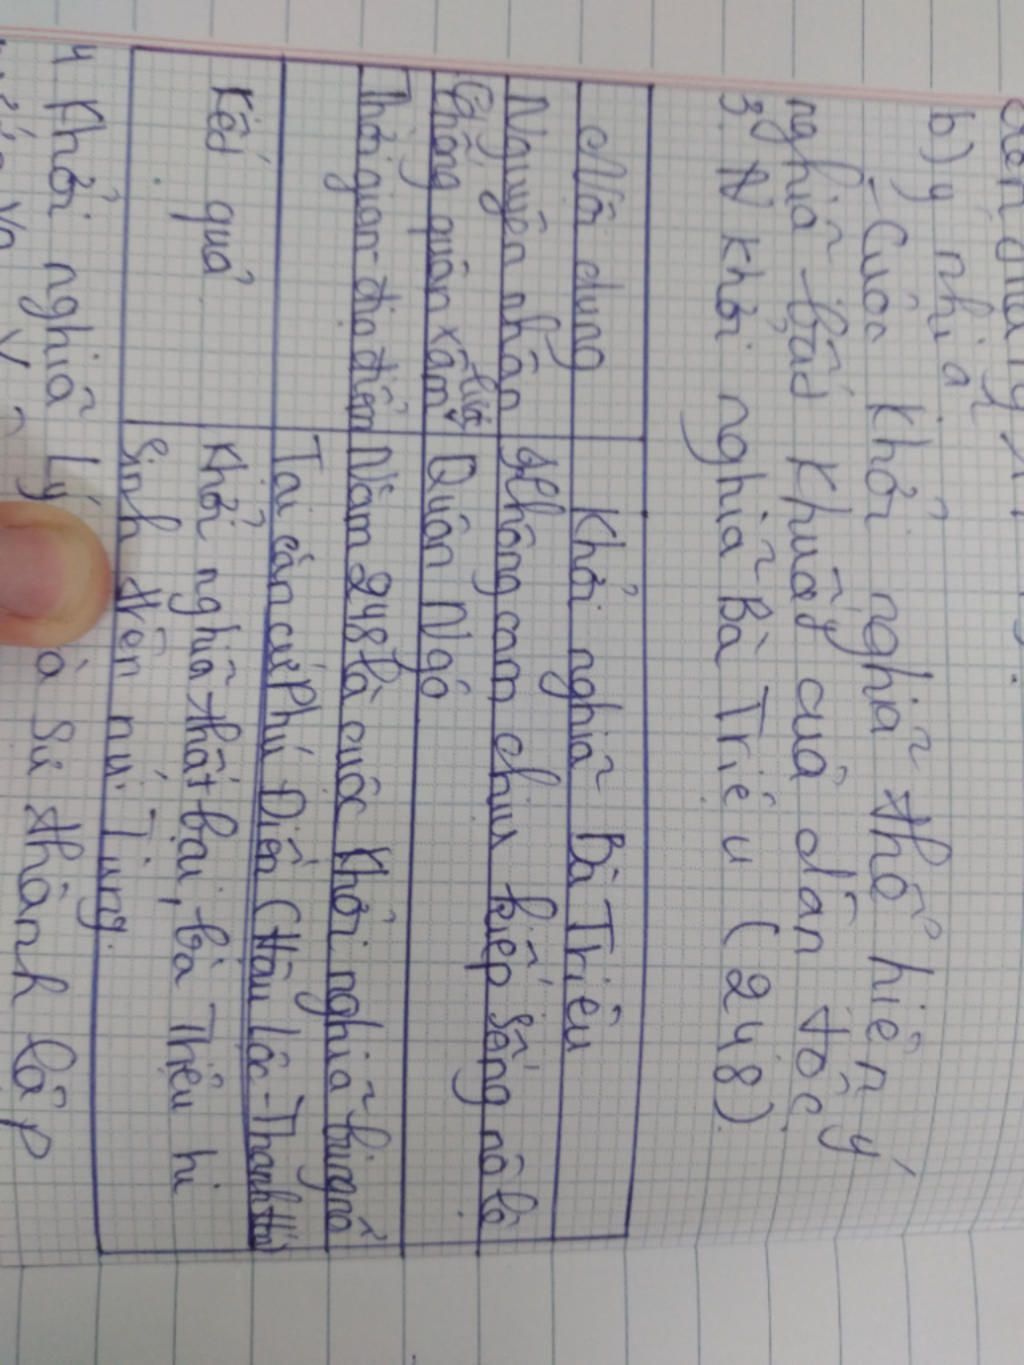 b) ý nhĩa
- Cuộc khởi nghĩa thể hiện ý
nghĩa bất khuất của dân tộc
3. N khởi nghĩa Bà Triệu (248)
Nội dung
Khởi nghĩa Bà Triệu
Nguyên nhân
Không cam chịu kiếp sống nô lệ
Chống quân xâm lược
Quân Ngô
Thời gian - địa điểm
Năm 248 là cuộc khởi nghĩa bùng nổ
Tại căn cứ Phú Điền (Hậu Lộc - Thanh Hóa)
Kết quả
Khởi nghĩa thất bại, bà Triệu hi
Sinh trên núi Tùng.
4 Khởi nghĩa Lý
sự thành lập